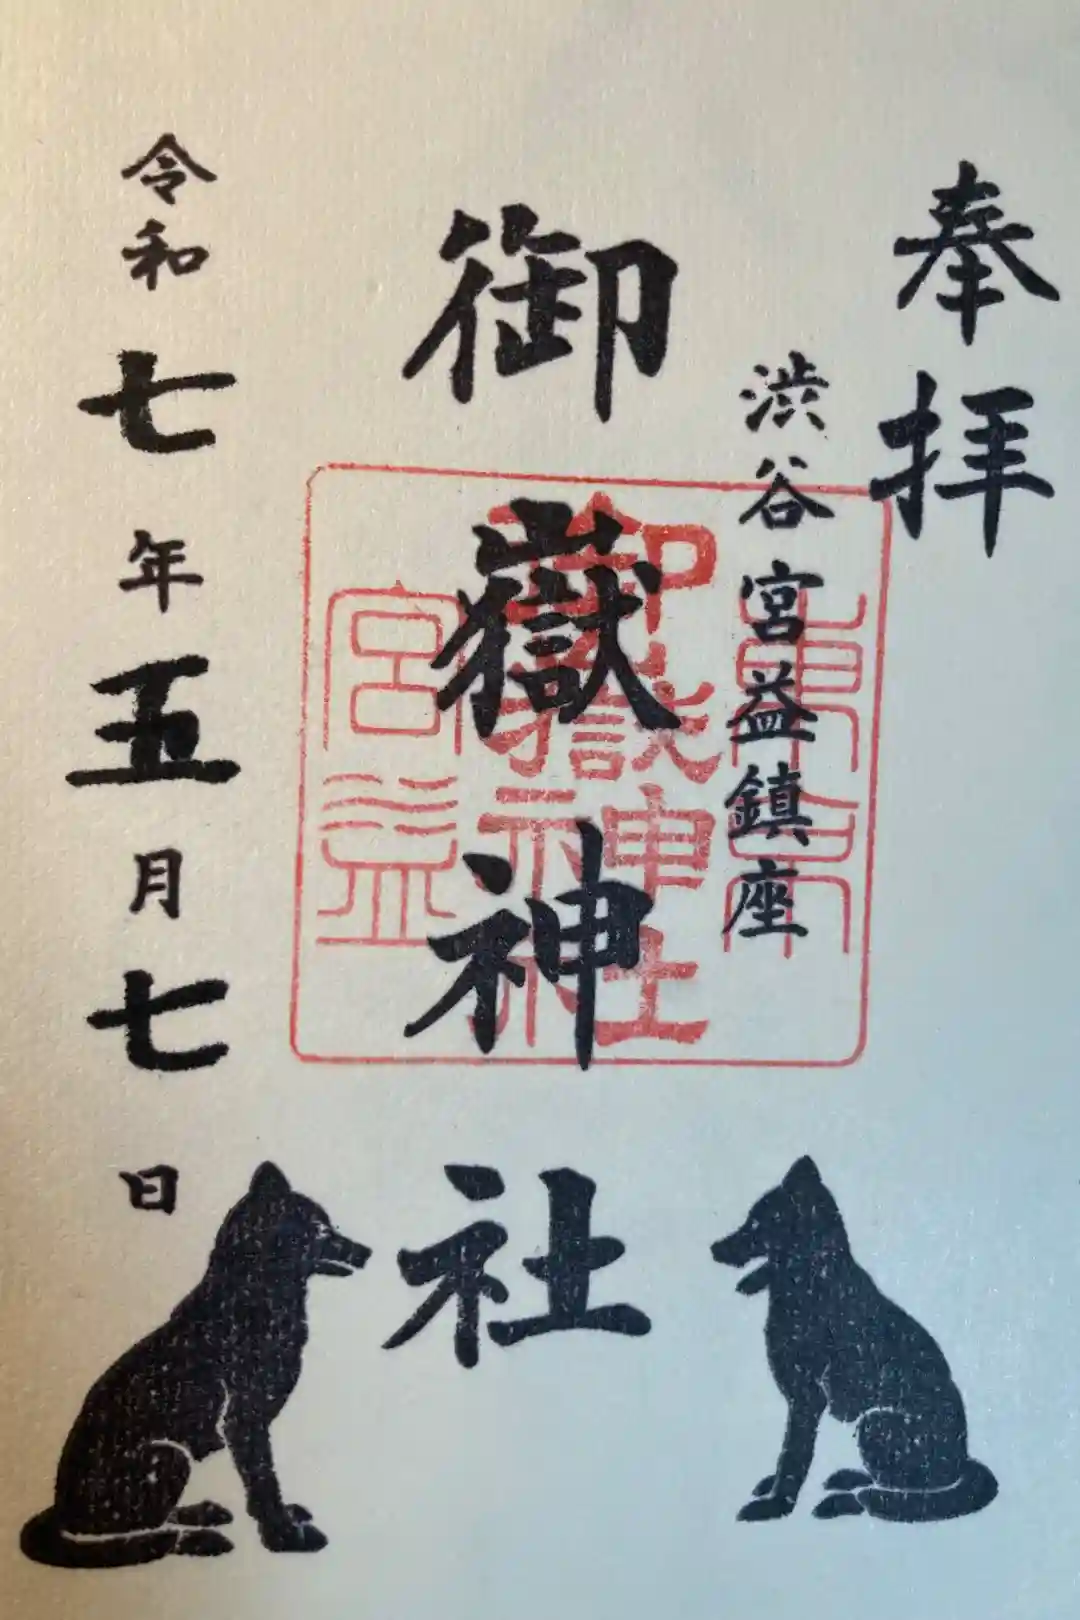 奉拝
渋谷宮益鎮座
御嶽神社
令和七年五月七日
東京
御嶽神社
宮益